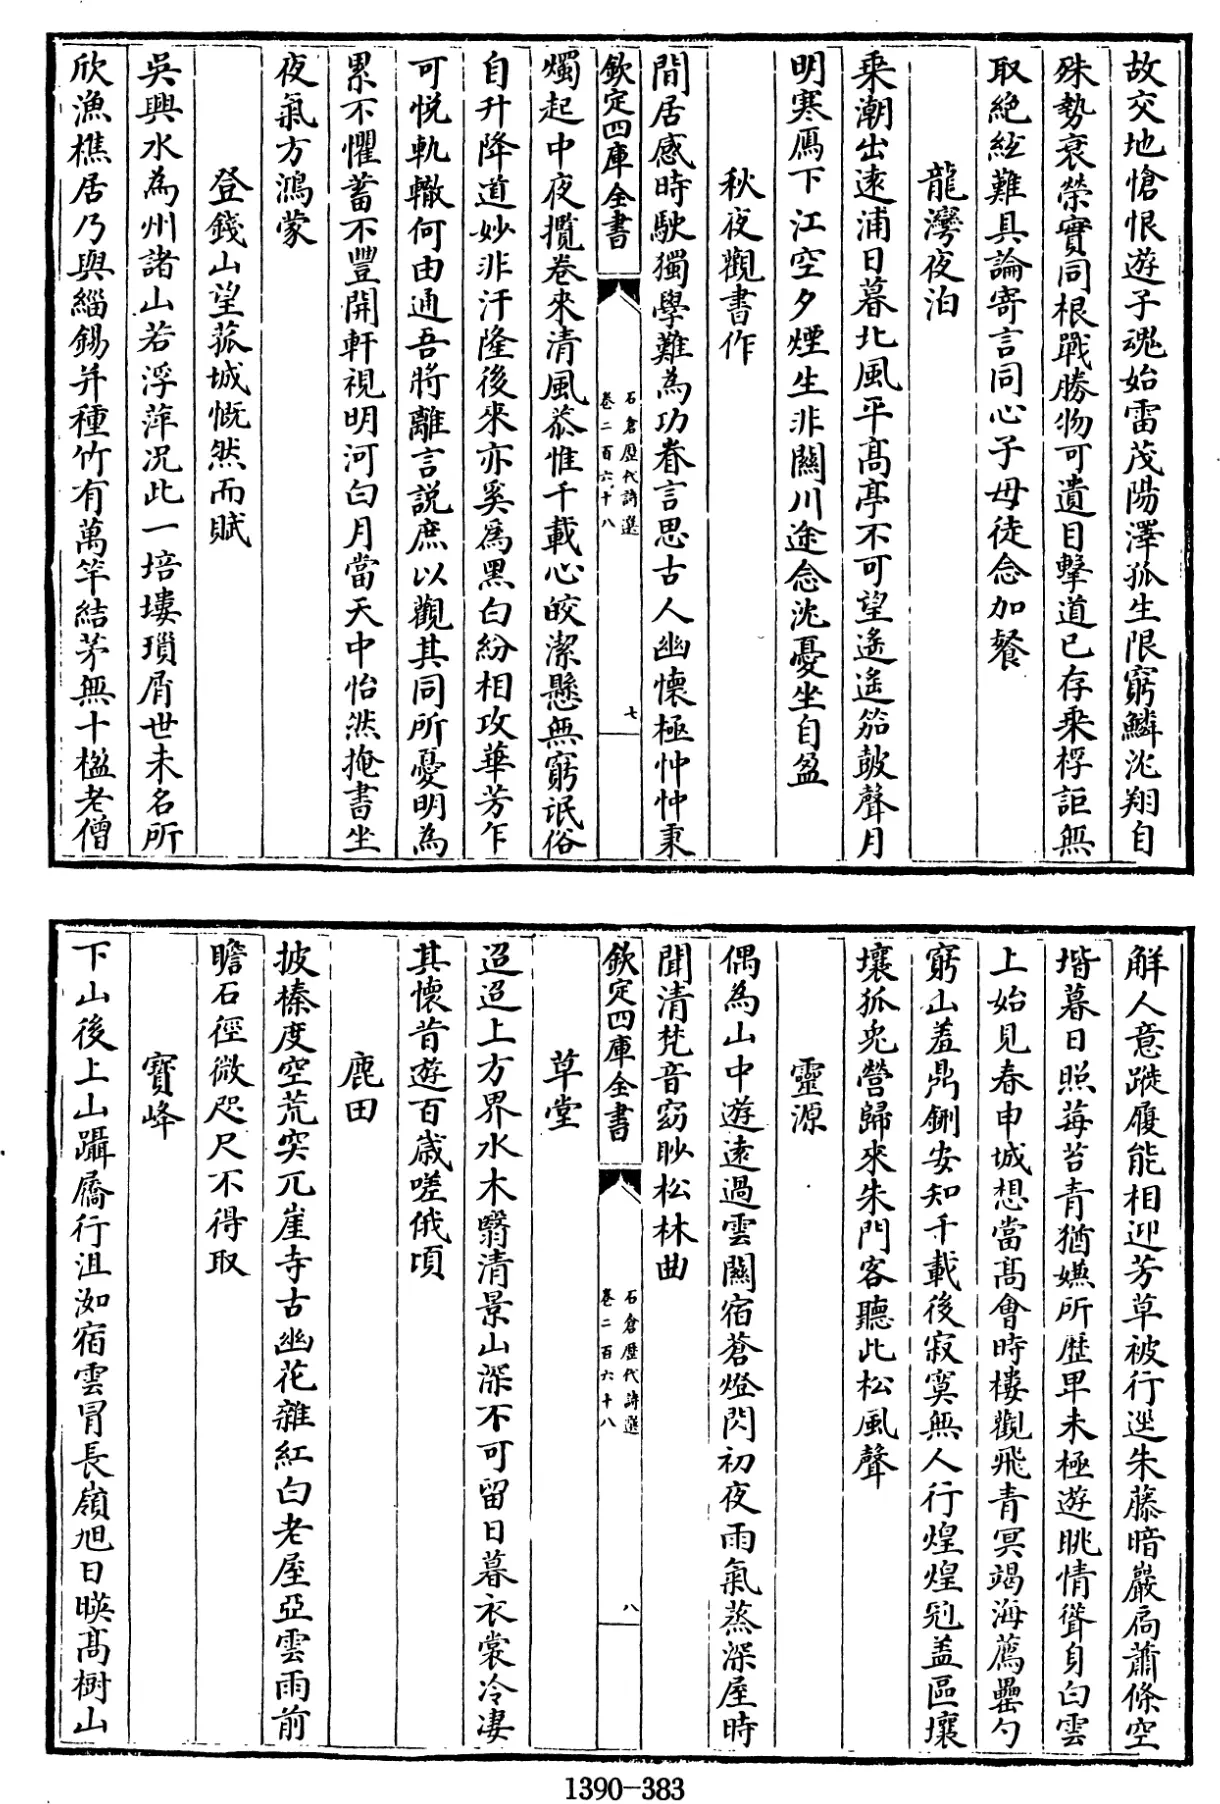 故交地愴恨遊子魂始雷茂陽澤孤生限窮鱗沈翔自
殊勢衰榮實同根戰勝物可遺目擊道已存乘桴詎無
取絶絃難具論寄言同心子毋徒念加餐
龍灣夜泊
乘潮出遠浦日暮北風平髙亭不可望遙遙笳皷聲月
明寒鴈下江空夕煙生非關川途念沈憂坐自盈
秋夜觀書作
閒居感時駛獨學難為功眷言思古人幽懐極忡忡秉
欽定四庫全書
石倉歴代詩選
卷二百六十八
七
燭起中夜攬卷來清風恭惟千載心皎潔懸無窮詆俗
自升降道妙非汙隆後來亦奚為黑白紛相攻華芳乍
可悦軌轍何由通吾將離言説庶以觀其同所憂明為
累不懼蓄不豐開軒視明河白月當天中怡然掩書坐
夜氣方鴻蒙
登錢山望菰城慨然而賦
吳興水為州諸山若浮萍况此一培塿瑣屑世未名所
欣漁樵居乃與緇錫并種竹有萬竿結茅無十楹老僧
解人意蹝履能相迎芳草被行逕朱藤暗巖扃蕭條空
堦暮日照莓苔青猶嫌所歴卑未極遊眺情聳身白雲
上始見春申城想當髙會時樓觀飛青冥竭海薦罍勺
窮山羞鼎鉶安知千載後寂寞無人行煌煌冠盖區壤
壤狐兎營歸來朱門客聽此松風聲
靈源
偶為山中遊遠過雲關宿蒼燈閃初夜雨氣蒸深屋時
聞清梵音窈眇松林曲
欽定四庫全書
石倉歴代詩選
卷二百六十八
八
草堂
迢迢上方界水木翳清景山深不可留日暮衣裳冷凄
其懐昔遊百歳嗟俄頃
鹿田
披榛度空荒突兀崖寺古幽花雜紅白老屋亞雲雨前
瞻石徑微咫尺不得取
寶峰
下山後上山躡屩行沮洳宿雲冒長嶺旭日暎髙樹山
1390-383